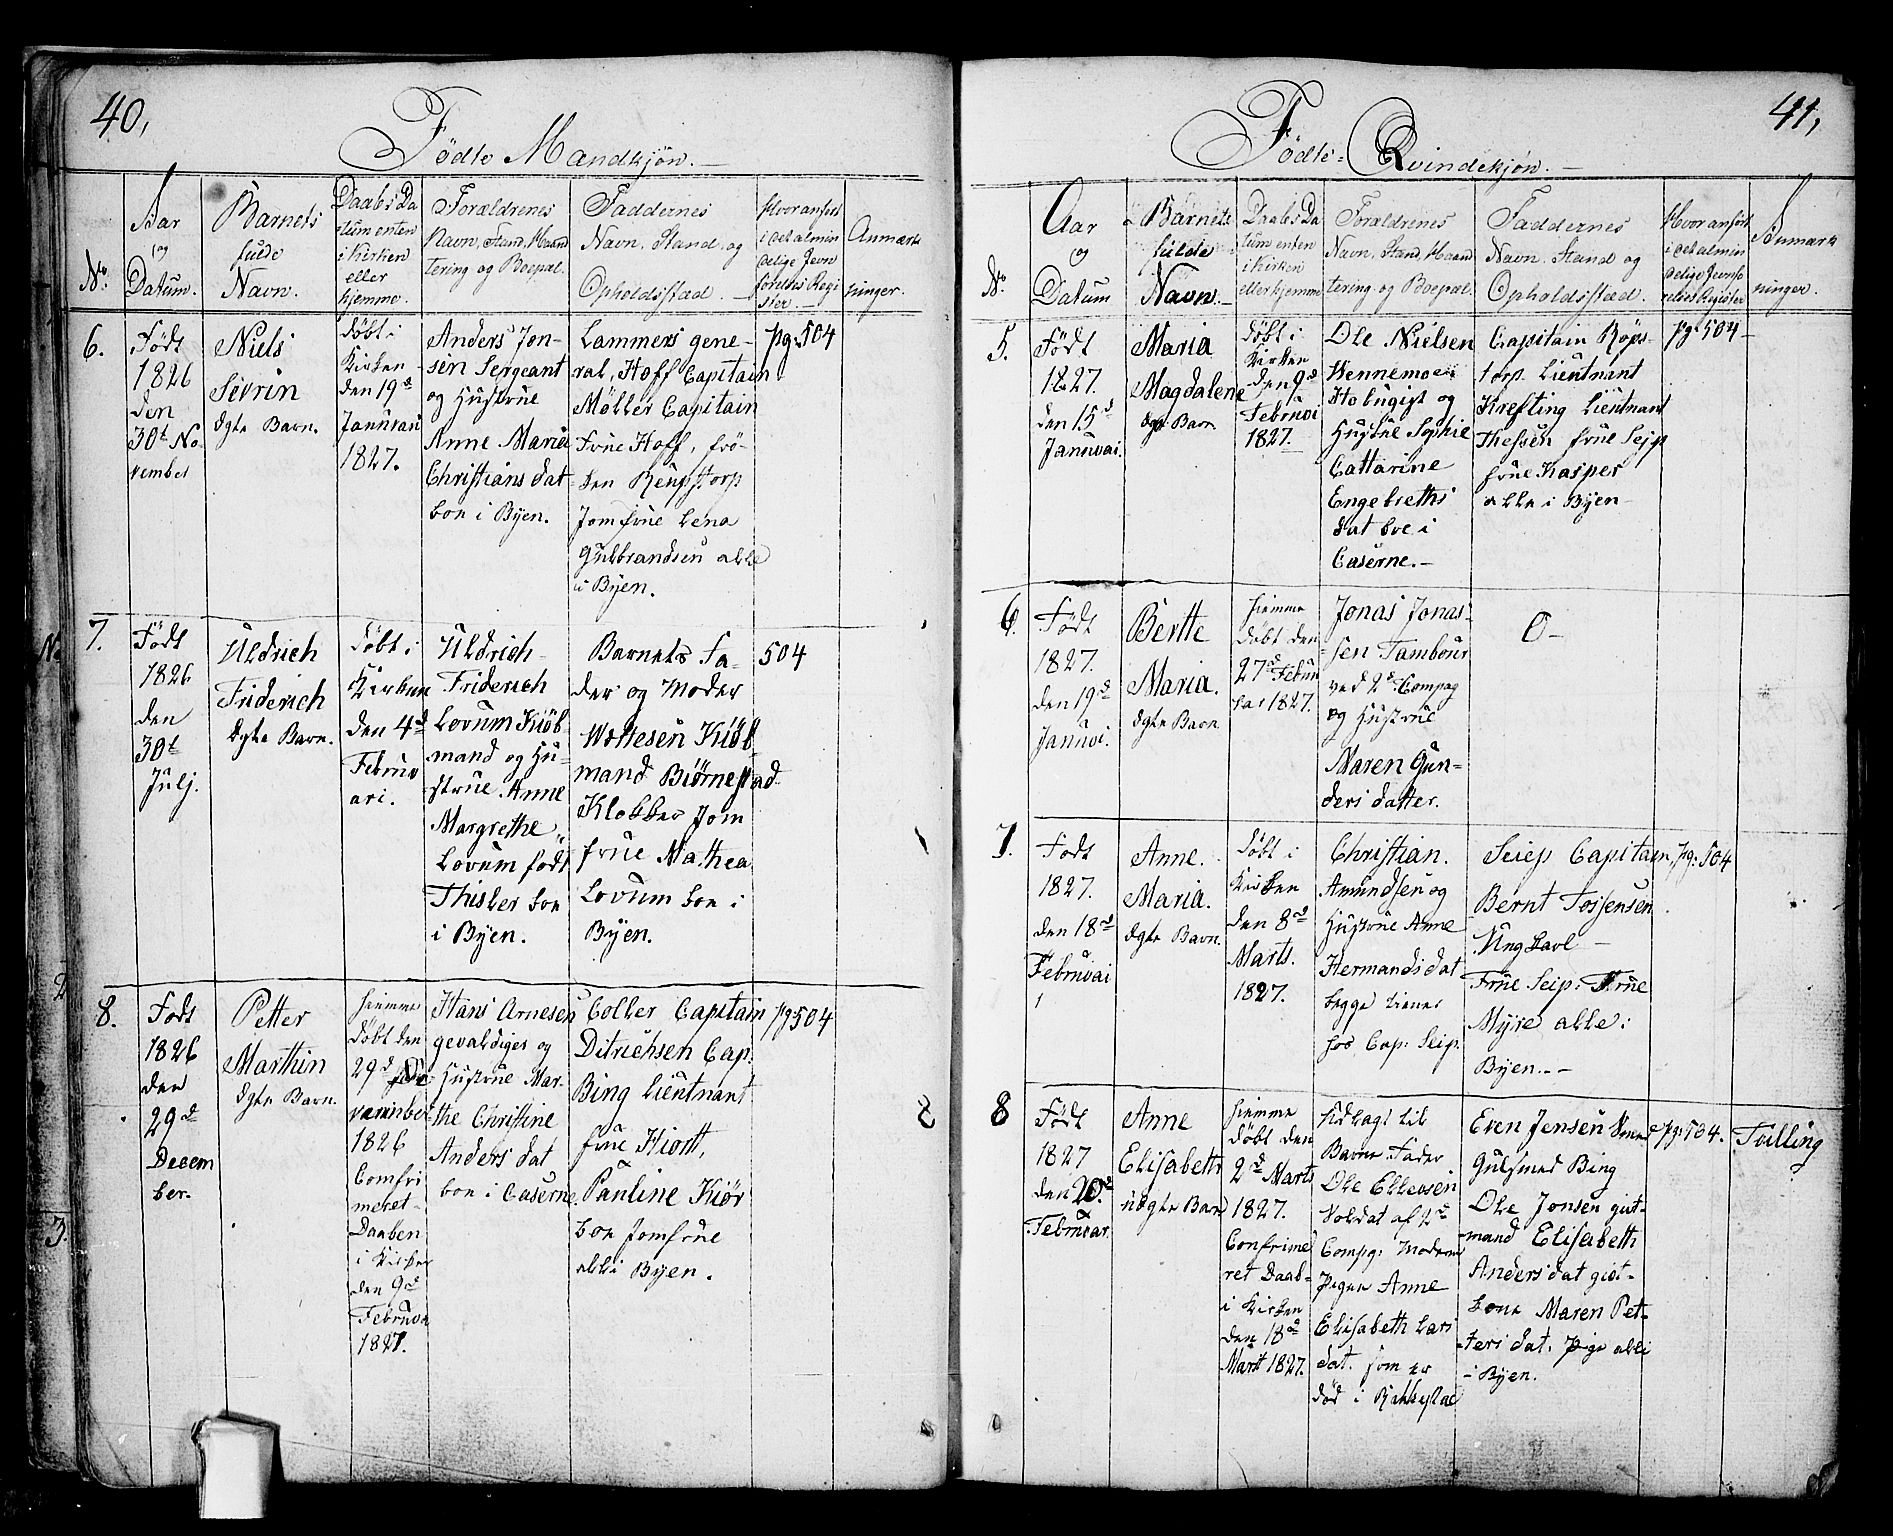 40,
Fødte Mandkjøn.
No
Aar
og
Datum.
Barnets
fulde
Navn.
Daabs Da
tum enten
i Kirken
eller
hjemme.
Forældrenes
Navn, Stand, Haand
tering og Boepæl.
Faddernes
Navn, Stand og
Opholdsstæd.
Hvor anført
i det almin
delige Jevn
førelses Regi
ster.
Anmærk
ninger.
6.
Født
1826
den
30t No
vember
Niels
Sevrin
Egte Barn.
Døbt i
Kirken
den 19d
Januvari
1827.
Anders Jon-
sen Sergeant
og Hustrue
Anne Maria
Christians dat
boe i Byen.
Lammers gene-
ral, Hoff Capitain
Møller Capitain
Frue Hoff, frø-
ken Reupstorp
Jomfrue Lena
Gulbrandsen alle
i Byen.
pg: 504
7.
Født
1826
den
30t
Julj.
Uldrich
Friderich
Egte Barn.
Døbt i
Kirken
den 4d
Februv
ari.
Uldrich
Friderich
Lovum Kiøb-
mand og Hu-
strue Anne
Margrethe
Lovum født
Thisler boe
i Byen.
Barnets Fa-
der og Moder
Wottesen Kiøb-
mand Biørnestad
Klokker Jom
frue Mathea
Lovum boe i
Byen.
504
8.
Føds
1826
den
29d
Decem
ber.
Petter
Marthin
Egte Barn.
hiemme
døbt den
29d
vemnber
1826
Comfri
meret
Daaben
i Kirken
den 9d
Februva
1827.
Hans Arnesen
gevaldiger og
Hustrue Mar-
the Christine
Anders dat
boe i Caserne.
Coller Capitain
Ditrichsen Cap.
Bing Lieutnant
frue Hiorth,
Pauline Kiør
boe Jomfrue
alle i Byen.
pg 504
41,
Fødte Qvindekjøn.
No
Aar
og
Datum
Barnets
fulde
Navn.
Daabs Da
tum enten
i Kirken
eller hjemme
Forældrenes
Navn, Stand, Haand
tering og Boepæl.
Faddernes
Navn, Stand og
Opholdsstæd.
Hvor anført
i det almin
delige Jevnfø
relses Register
Anmærk
ninger.
5.
Født
1827.
den 15d
Januvai.
Maria
Magdalene
Egte Barn
Døbt i
Kirken
den 9d
Februvi
1827.
Ole Nielsen
Wennemoe
Hobugist og
Hustrue Sophie
Cattarine
Engebreths
dat boe i
Caserne.
Capitain Røps-
torp Lieutnant
Krefting Lieutnant
Thessen frue Seip
frue Kasper
alle i Byen
pg: 504
6.
Født
1827.
den 19d
Januvi.
Berthe
Maria.
Egte Barn
hiemme
døbt den
27d Februv
1827.
Jonas Jonas-
sen Tambour
ved 2d Compag
og Hustrue
Maren Gun-
ders datter.
O-
7.
Føds
1827.
den 18d
Februvai
Anne.
Maria.
Egte Barn.
Døbt i
Kirken
den 8d
Marts.
1827.
Christian.
Amundsen og
Hustrue Anne
Hermands dat
begge tiener
hos Cap: Seip.
Seiep Capitain,
Bernt Tossensen
Ungkarl
Frue Seip: Frue
Myre alle i
Byen.
pg: 504
8
Født
1827
den 20d
Februar.
Anne
Elisabeth
uægte Barn
hiemme
døbt den
2d Marts
1827.
Confrime
ret Daab-
i Kirken
den 18d
Mart 1827.
Udlagt til
Barne Fader
Ole Ellevsen
Soldat af 2d
Compg: Moderen
Pigen Anne
Elisabeth Lars
dat. som er
død i
Even Jensen
Gulsmed Bing
Ole Jonsen gut-
mand Elisabeth
Anders dat gift-
kone Maren Pet-
ters dat. Pige alle
i Byen.
pg: 504.
Tvilling